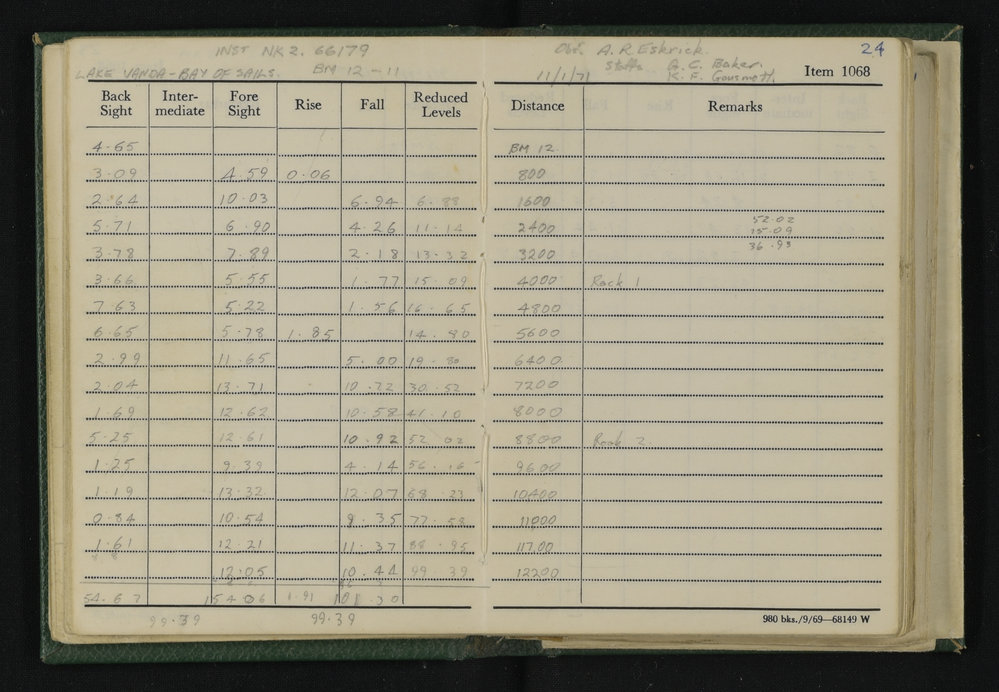 INST NK2. 66179
LAKE VANDA - BAY OF SAILS. BM 12 - 11
Obs. A. R Eskrick. 24
Staffs G. C. Baker.
11/1/71 K. F. Gousmett. Item 1068
Back Sight Inter-mediate Fore Sight Rise Fall Reduced Levels Distance Remarks
4.65 BM 12
3.09 4.59 0.06 800
2.64 10.03 6.94 6.88 1600
5.71 6.90 4.26 11.14 2400 52.02
15.09
3.78 7.89 2.18 13.32 3200 36.93
3.66 5.55 1.77 15.09 4000 Rock 1
7.63 5.22 1.56 16.65 4800
6.65 5.78 1.85 14.80 5600
2.99 11.65 5.00 19.80 6400
2.04 13.71 10.72 30.52 7200
1.69 12.62 10.58 41.10 8000
5.25 12.61 10.92 52.02 8800 Rock 2
1.25 9.39 4.14 56.16 9600
1.19 13.32 12.07 68.23 10400
0.84 10.54 9.35 77.58 11000
1.61 12.21 11.37 88.95 11700
12.05 10.44 99.39 12200
54.67 154.06 1.91 101.30
99.39 99.39
980 bks./9/69—68149 W